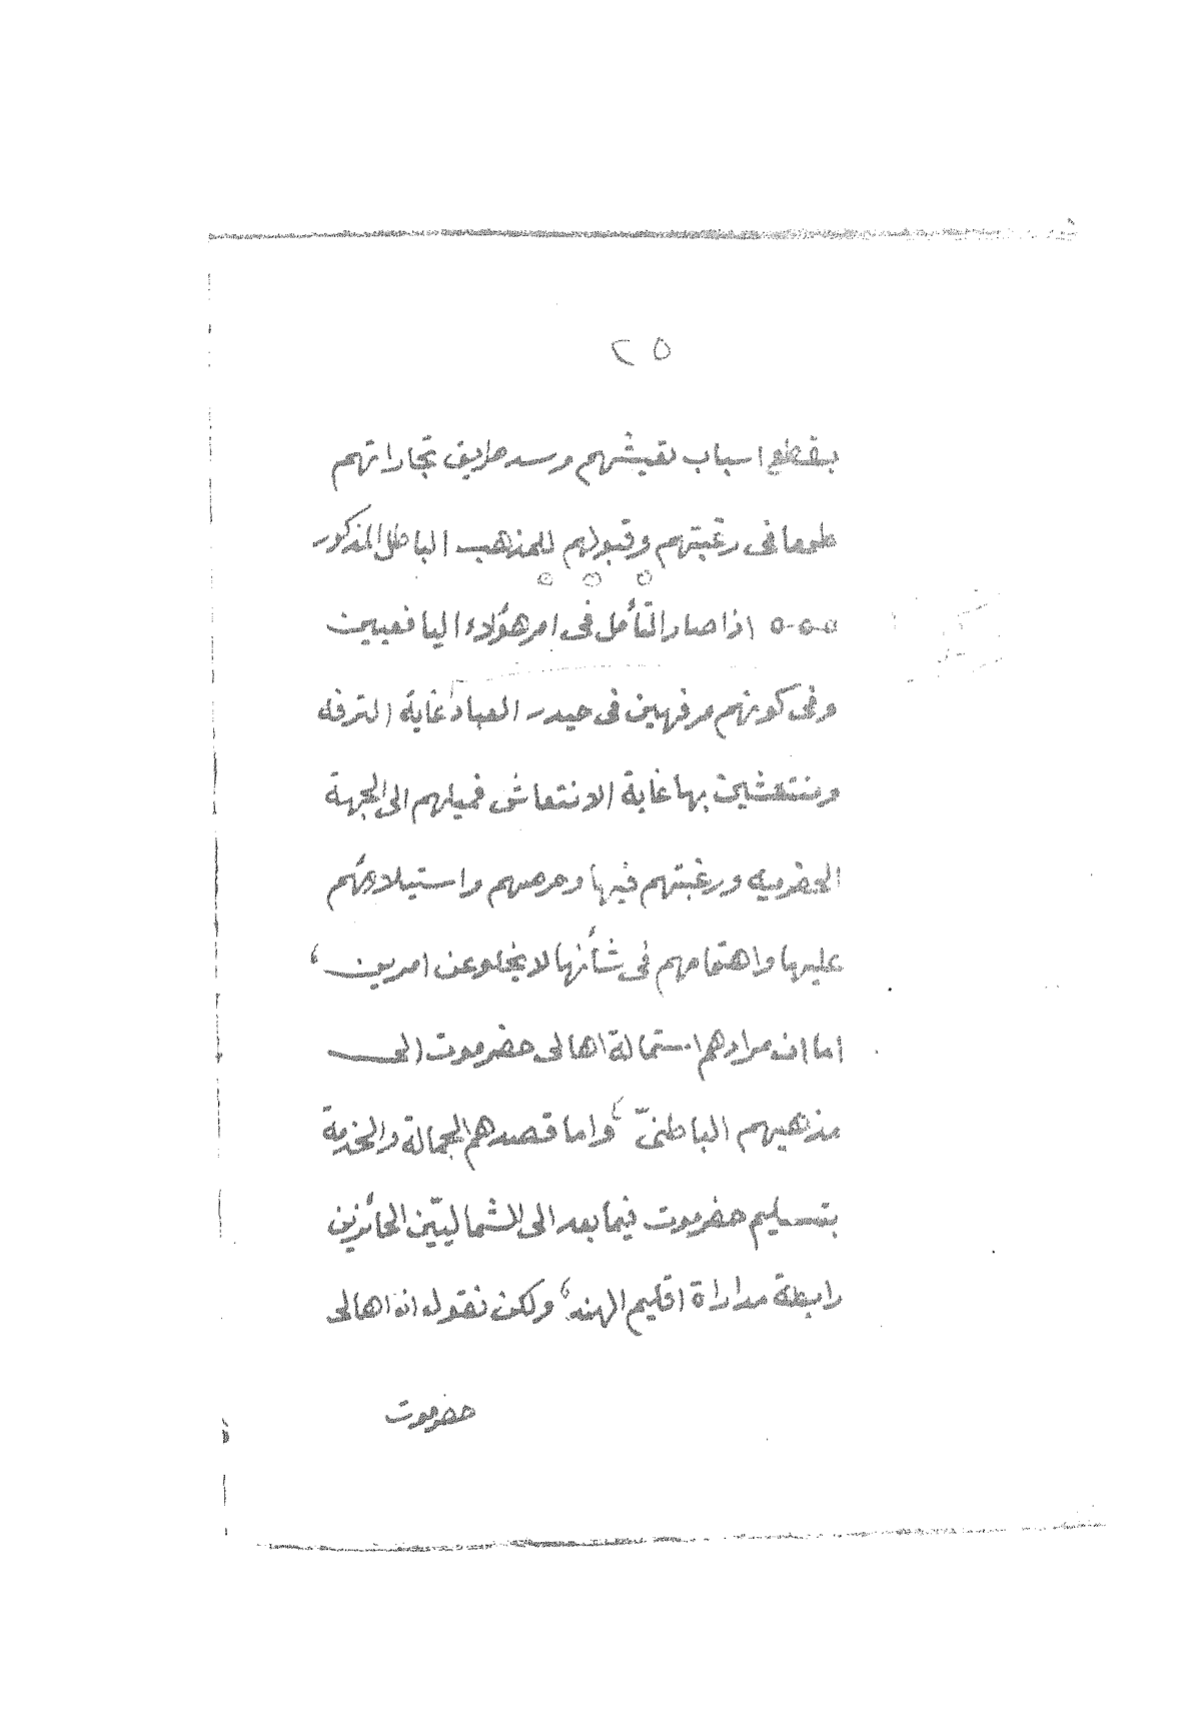 ٢٥
بقطع اسباب تعيشهم وسد طريق تجاراتهم
طمعا فى رغبتهم وقبولهم للمذهب الباطل المذكور
٥٥٥
٥-٥-٥ اذا صار التأمل فى امر هؤلاء اليافعيين
وفى كونهم مرفهين فى حيدر العباد غاية الترفه
ومنتعشين بها غاية الانتعاش فميلهم الى الجهة
الحضرميه ورغبتهم فيها وحرصهم واستيلاءهم
عليها واهتمامهم فى شأنها لا يخلو عن امرين ،
اما ان مرادهم استمالة اهالى حضرموت الى
مذهبهم الباطنىّ ، واما قصدهم الجمالة والخدمة
بتسليم حضرموت فيما بعد الى الشماليّين الحائزين
رابطة مداراة اقليم الهند ، ولكن نقول ان اهالى
حضرموت